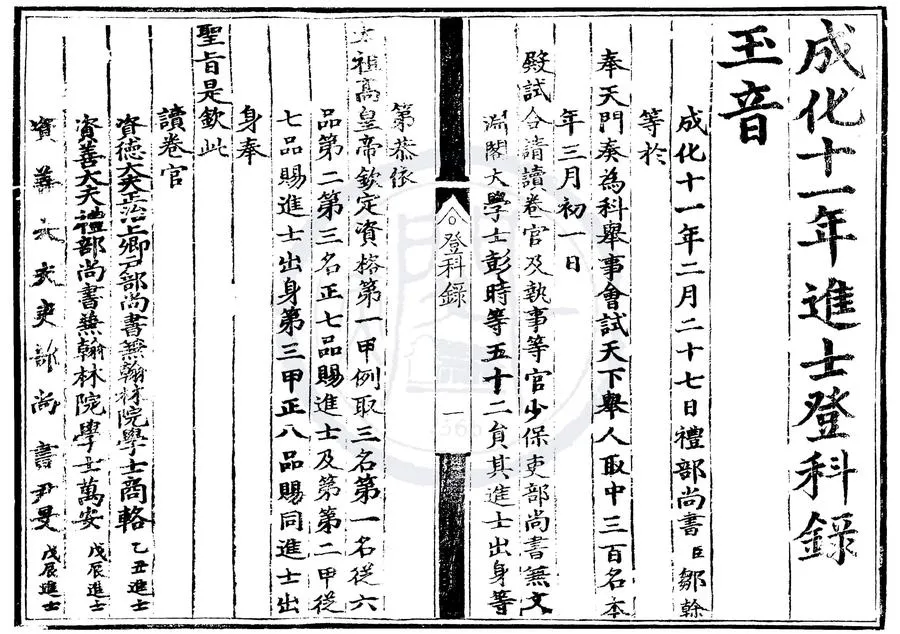 成化十一年進士登科錄
玉音
成化十一年二月二十七日禮部尚書臣鄒榦
等於
奉天門奏為科舉事會試天下舉人取中三百名本
年三月初一日
殿試合請讀卷官及執事等官少保吏部尚書兼文
淵閣大學士彭時等五十二員其進士出身等
登科錄
一
第恭依
太祖高皇帝欽定資格第一甲例取三名第一名從六
品第二第三名正七品賜進士及第第二甲從
七品賜進士出身第三甲正八品賜同進士出
身奉
聖旨是欽此
讀卷官
資德大夫正治上卿戶部尚書兼翰林院學士商輅 乙丑進士
資善大夫禮部尚書兼翰林院學士萬安 戊辰進士
資善大夫吏部尚書尹旻 戊辰進士